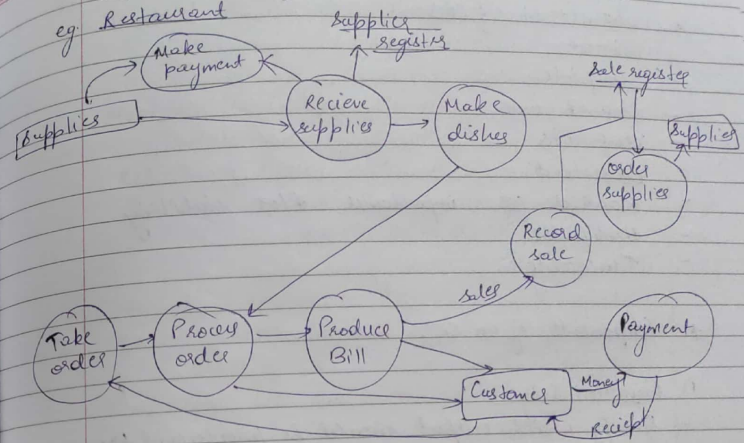 eg. Restaurant
Make
payment
Supplies
register
Supplies
Recieve
supplies
Make
dishes
Sale register
Supplies
Order
supplies
Record
sale
Sales
Take
order
Process
order
Produce
Bill
Payment
Customer
Money
Reciept